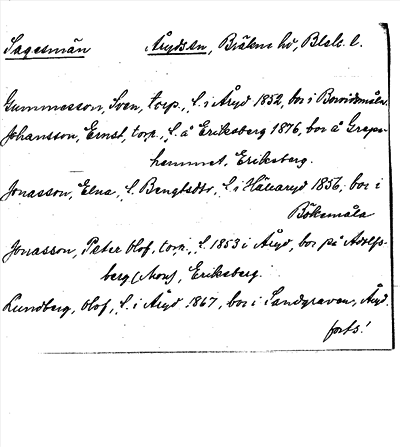 Sagesmän Åryds sn, Bräkne hd, Blek. l.
Gummesson, Sven, torp., f. i Åryd 1852, bor i
Johansson, Ernst, torp., f. å Eriksberg 1876, bor å Greps-
hemmet, Eriksberg.
Jonasson, Elna, f. Bengtsdtr, f. i Hällaryd 1856, bor i
Bökemåla
Jonasson, Peter Olof, torp., f. 1853 i Åryd, bor på Adolfs-
berg, Eriksberg.
Lundberg, Olof, f. i Åryd 1867, bor i Sandgraven, Åryd.
forts!